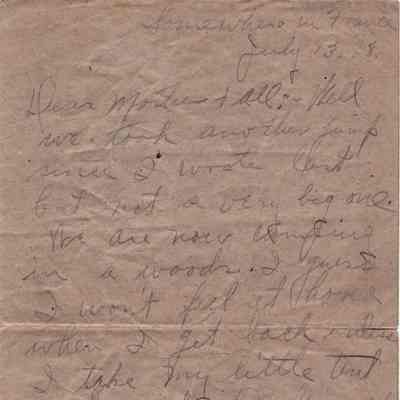 Somewhere in France
July 13, 18.
Dear Mother & all:- Well
we took another jump
since I wrote last
but not a very big one.
We are now camping
in a woods. I guess
I won't feel at home
when I get back unless
I take my little tent